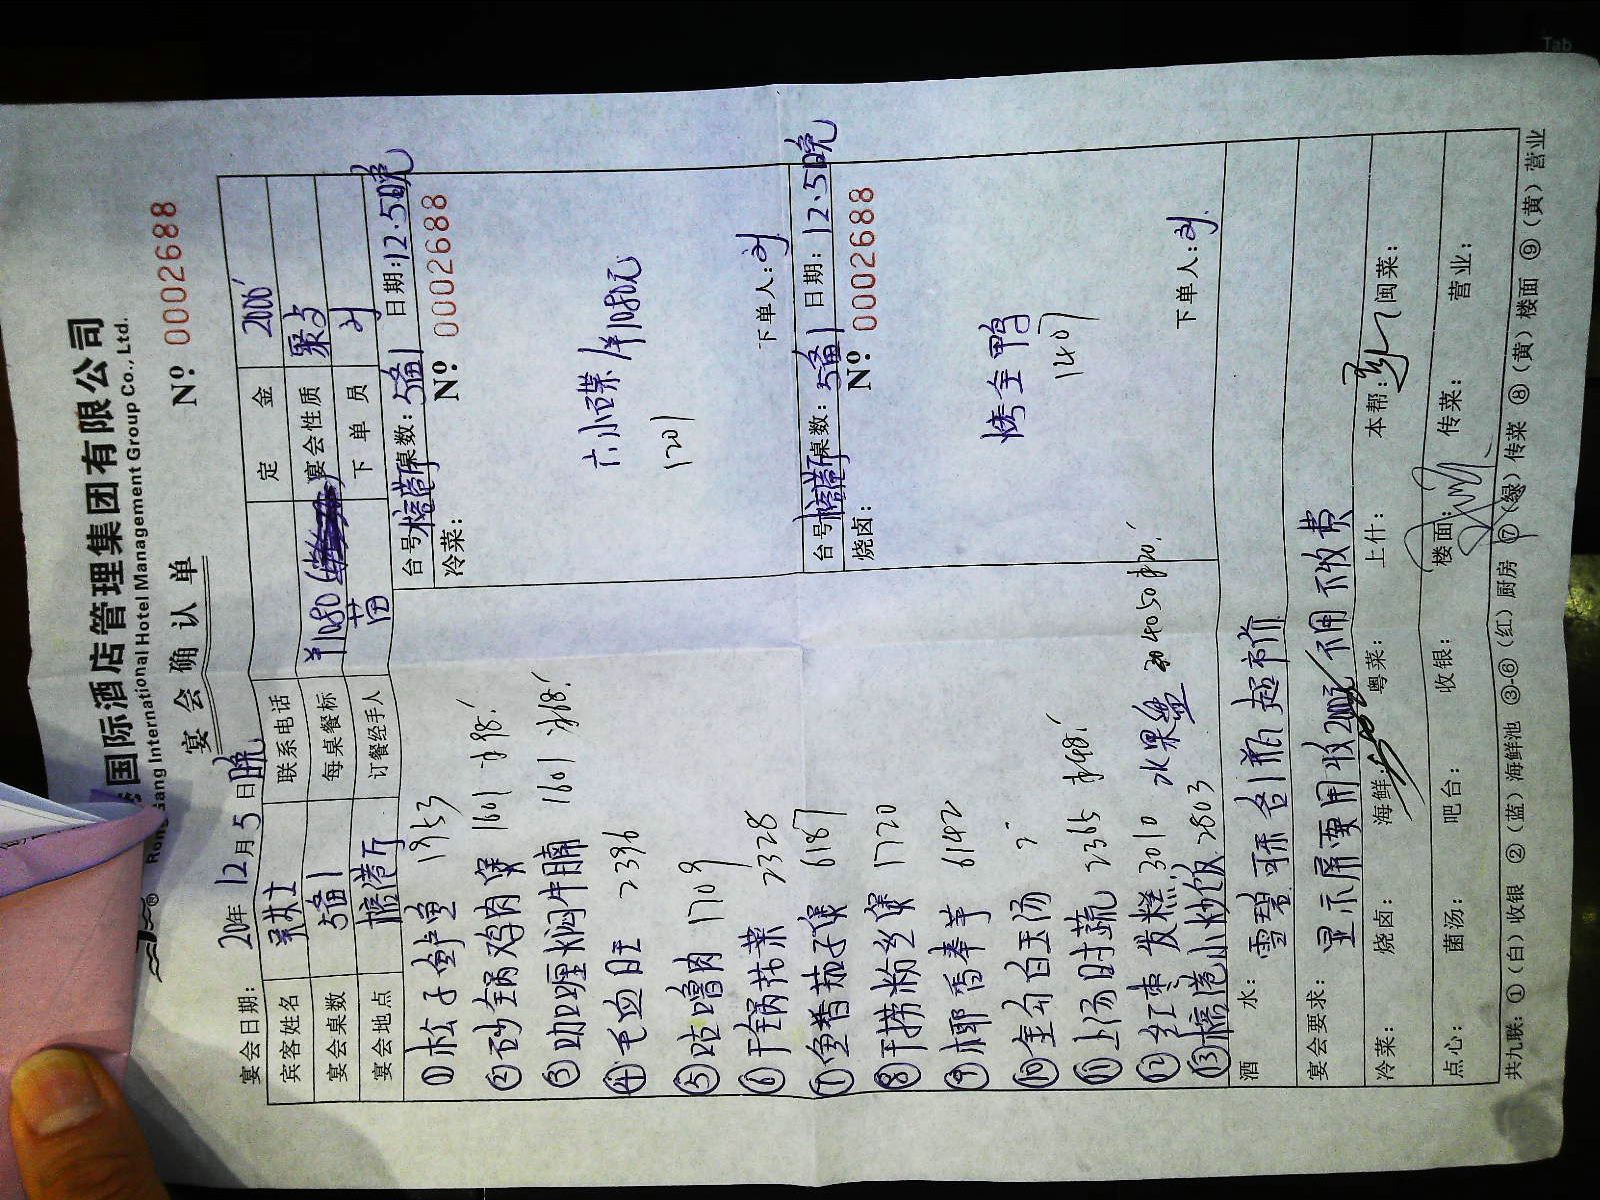 国际酒店管理集团有限公司
Rong Gang International Hotel Management Group Co., Ltd.
宴会确认单
№ 0002688
宴会日期: 20 年 12 月 5 日 晚
宾客姓名 联系电话 定金 2000
宴会桌数 5备1 每桌餐标 ¥1080 宴会性质 聚会
宴会地点 榕港厅 订餐经手人 苗 下单员 刘
台号 榕港厅 桌数: 5备1 日期: 12.5晚
冷菜: № 0002688
六小碟
1201
下单人: 刘
台号 榕港厅 桌数: 5备1 日期: 12.5晚
烧卤: № 0002688
烤全鸭
1407
下单人: 刘
①松子鲈鱼 1953
②砂锅鸡肉煲 1601
③咖喱焖牛腩 1601
④毛血旺 2396
⑤咕噜肉 1709
⑥干锅花菜 2328
⑦鱼香茄子煲 6187
⑧干捞粉丝煲 1720
⑨椰香奉芋 6142
⑩金勾白玉汤
⑪上汤时蔬 2365
⑫红枣发糕 3010 水果盘
⑬榕港小炒饭 2803
酒水: 雪碧可乐各1瓶 超市价
宴会要求: 显示屏要用收200元 不用不收费
冷菜: 烧卤: 海鲜: 粤菜: 上什: 本帮: 闽菜:
点心: 菌汤: 吧台: 收银: 楼面: 传菜: 营业:
共九联: ①(白)收银 ②(蓝)海鲜池 ③-⑥(红)厨房 ⑦(绿)传菜 ⑧(黄)楼面 ⑨(黄)营业
Tab